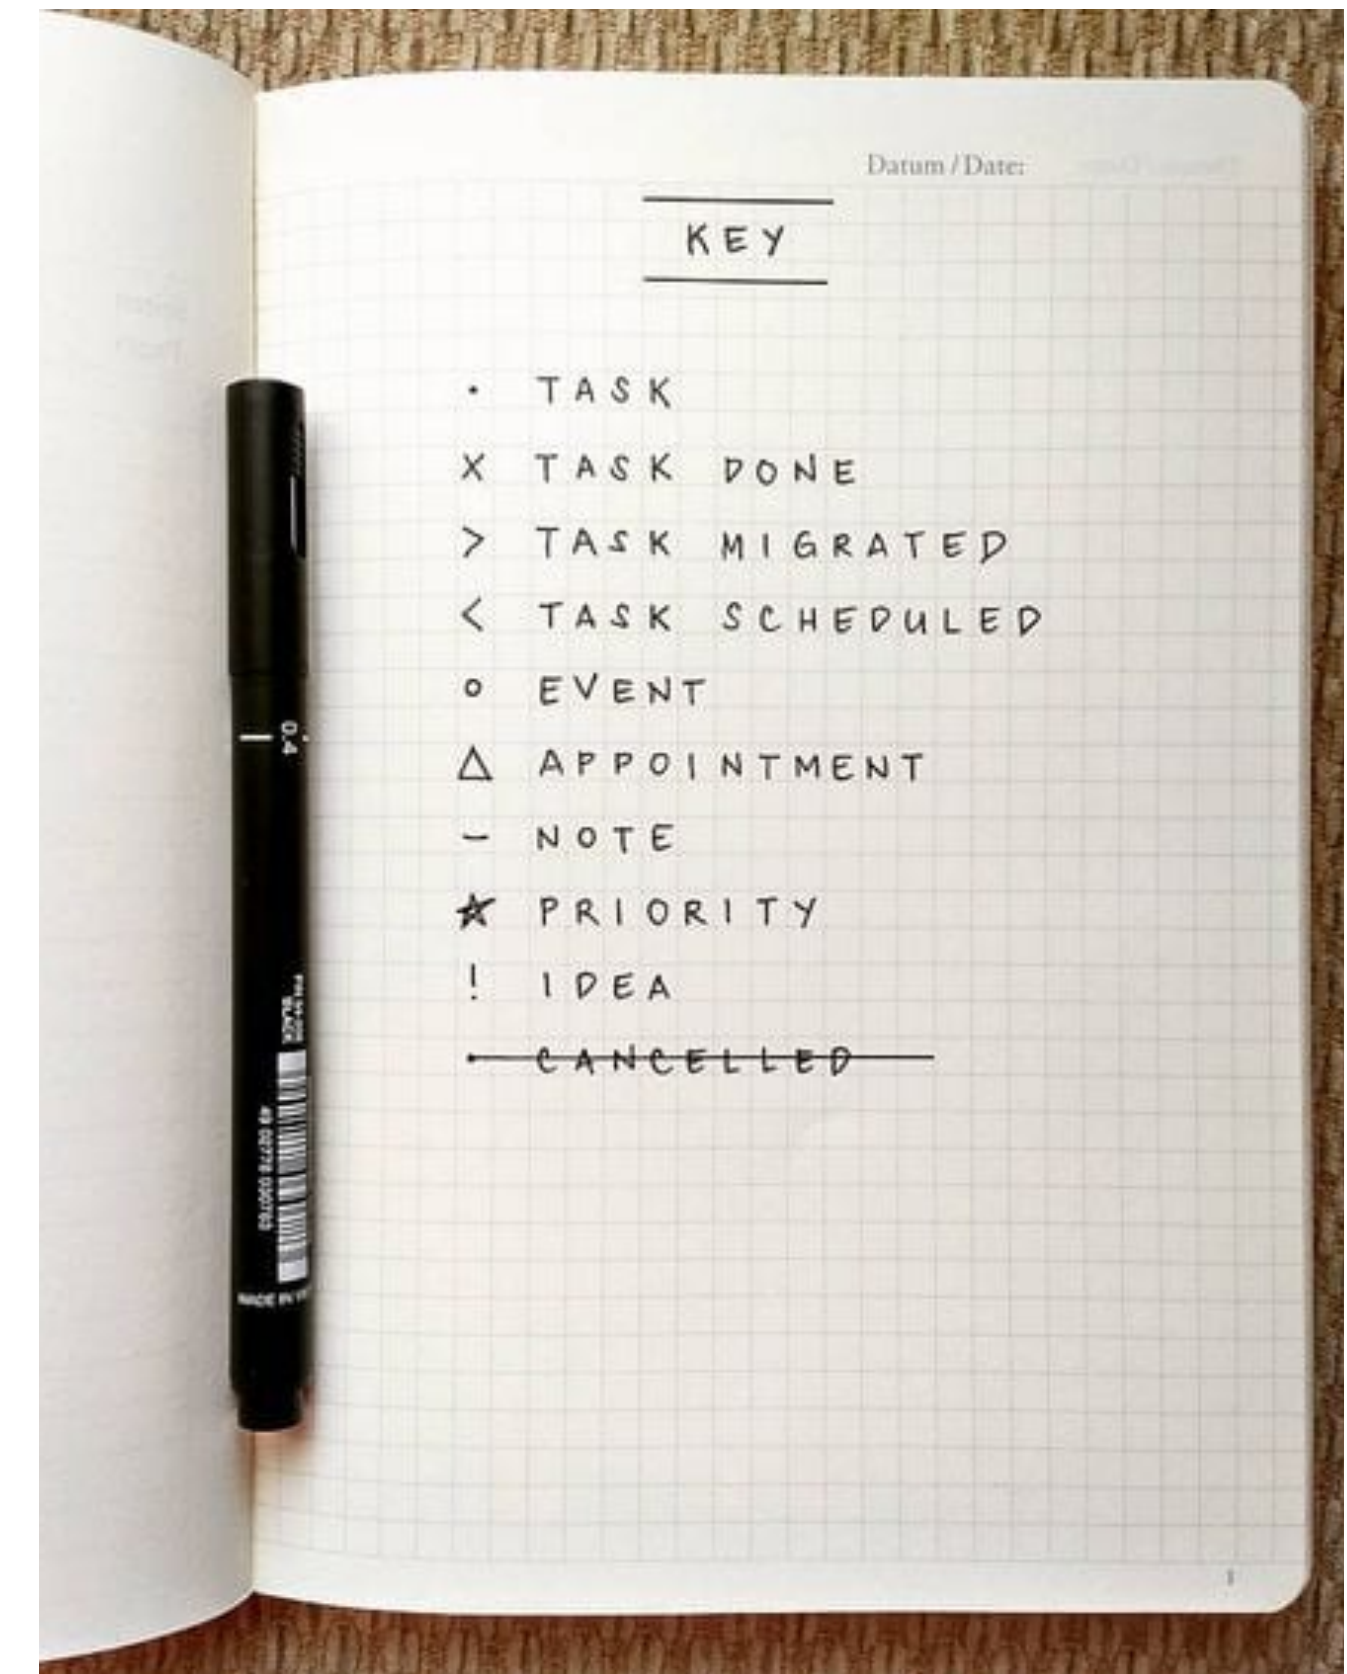 Datum / Date:
KEY
· TASK
X TASK DONE
> TASK MIGRATED
< TASK SCHEDULED
o EVENT
△ APPOINTMENT
– NOTE
☆ PRIORITY
! IDEA
· CANCELLED
0.4
BLACK
MADE IN
1